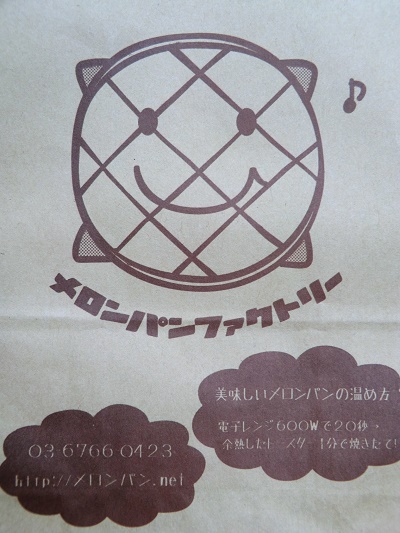 メロンパンファクトリー
美味しいメロンパンの温め方
電子レンジ600Wで20秒→
余熱したトースター1分で焼きたて!
03 6766 0423
http://メロンパン.net